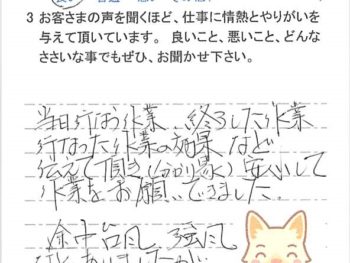 3 お客さまの声を聞くほど、仕事に情熱とやりがいを
与えて頂いています。 良いこと、悪いこと、どんな
ささいな事でもぜひ、お聞かせ下さい。
当日行なう作業、終了した作業
行なった作業の効果など
伝えて頂き(分かり易く)安心して
作業をお願いできました。
途中台風、強風